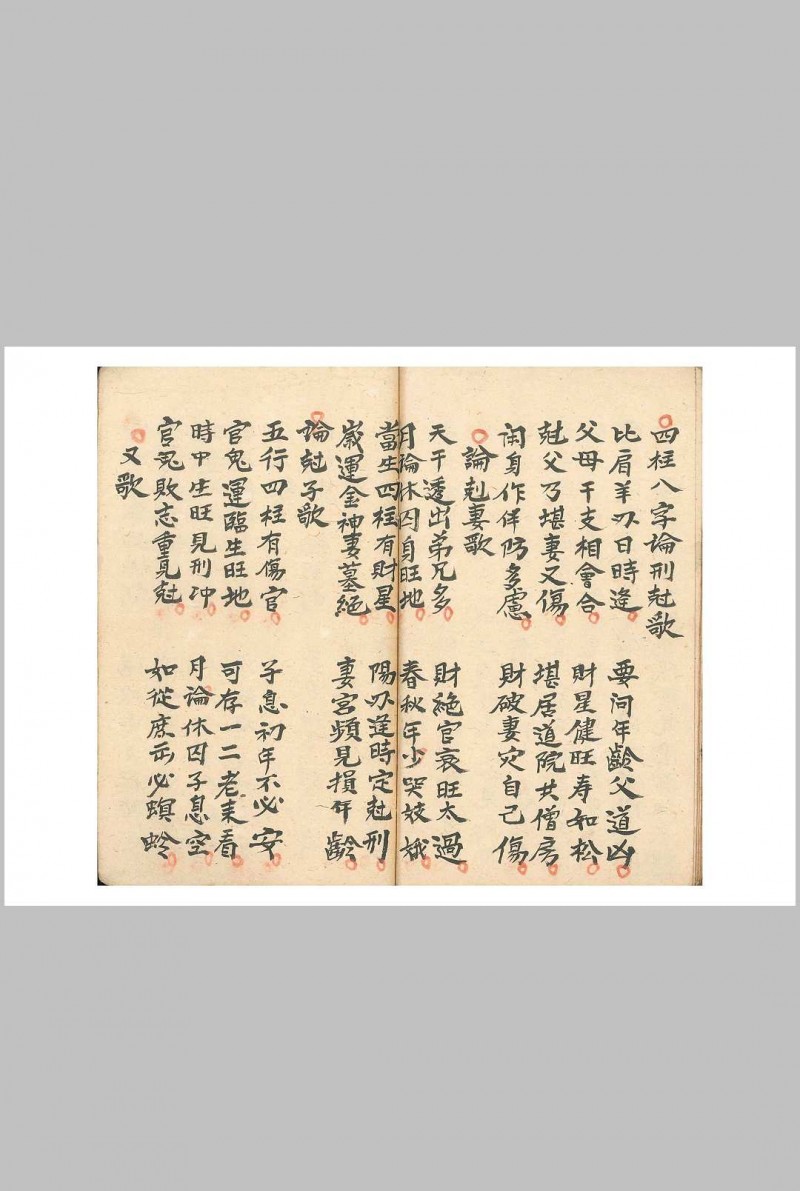 四柱八字論刑尅歌
比肩羊刃日時逢 要问年齡父道凶
父母干支相會合 財星健旺寿如松
尅父乃堪妻又傷 堪居道院共僧房
闲身作伴防多慮 財破妻灾自己傷
論尅妻歌
天干透出弟兄多 財絶官衰旺太過
月論休囚身旺地 春秋年少哭姣娥
當生四柱有財星 陽刃逢時定尅刑
歲運金神妻墓絕 妻宮頻見損年齡
論尅子歌
五行四柱有傷官 子息初年不必安
官鬼運臨生旺地 可存一二老来看
時中生旺見刑冲 月論休囚子息空
官鬼敗志重見尅 如從庶出必螟蛉
又歌